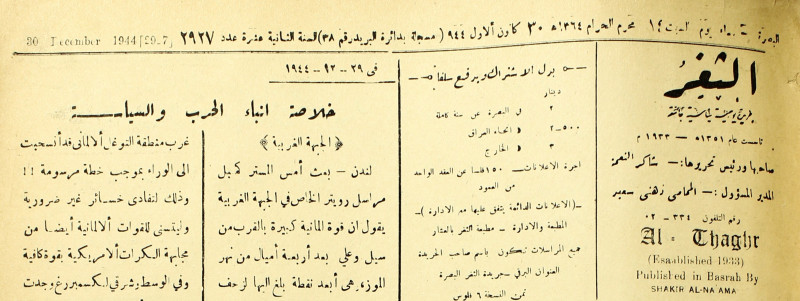 البصرة يوم السبت ١٤ محرم الحرام ١٣٦٤هـ ٣٠ كانون ألاول ٩٤٤ ( مسجلة بدائرة البريد رقم ٣٨) السنة الثانية عشرة عدد ٢٩٢٧
30 December 1944 [29.7]
الثغر
جريدة يومية سياسية
تأسست عام ١٣٥١هـ — ١٩٣٣ م
صاحبها ورئيس تحريرها:— شاكر النعمة
المدير المسؤول:— المحامي زهني سعير
رقم التلفون ٣٣٤ - ٠٢
Al - Thaghr
(Esaablished 1933)
Published in Basrah By
SHAKIR AL-NA'AMA
بدل الاشتراك ويدفع سلفاً
دينار
٢ في البصرة عن سنة كاملة
٥٠٠-٢ « انحاء العراق
٣ « الخارج
اجرة الاعلانات ١٥٠ فلسا عن العقد الواحد
من العمود
—(الاعلانات الدائمة يتفق عليها مع الادارة)—
المطبعة والادارة - مطبعة الثغر بالعشار
جميع المراسلات تكون باسم صاحب الجريدة
العنوان البرقي - جريدة الثغر البصرة
ثمن النسخة ٦ فلوس
في ٢٩-١٢-١٩٤٤
خلاصة انباء الحرب والسياسة
﴿الجبهة الغربية﴾
لندن - بعث أمس المستر كميل
مراسل رويتر الخاص في الجبهة الغربية
يقول ان قوة المانية كبيرة بالقرب من
سيل وعلي بعد أربعة أميال من نهر
الموزء هي أبعد نقطة بلغ اليها لزحف
غرب منطقة التوغل ألالماني قد أنسحبت
الى الوراء بموجب خطة مرسومة !!
وذلك لتفادى خسائر غير ضرورية
وليتسنى للقوات ألالمانية أيضا من
مجابهة الكرات ألامريكية بقوة كافية
وفي الوسط وشرقي لكسمبرغ وجدت